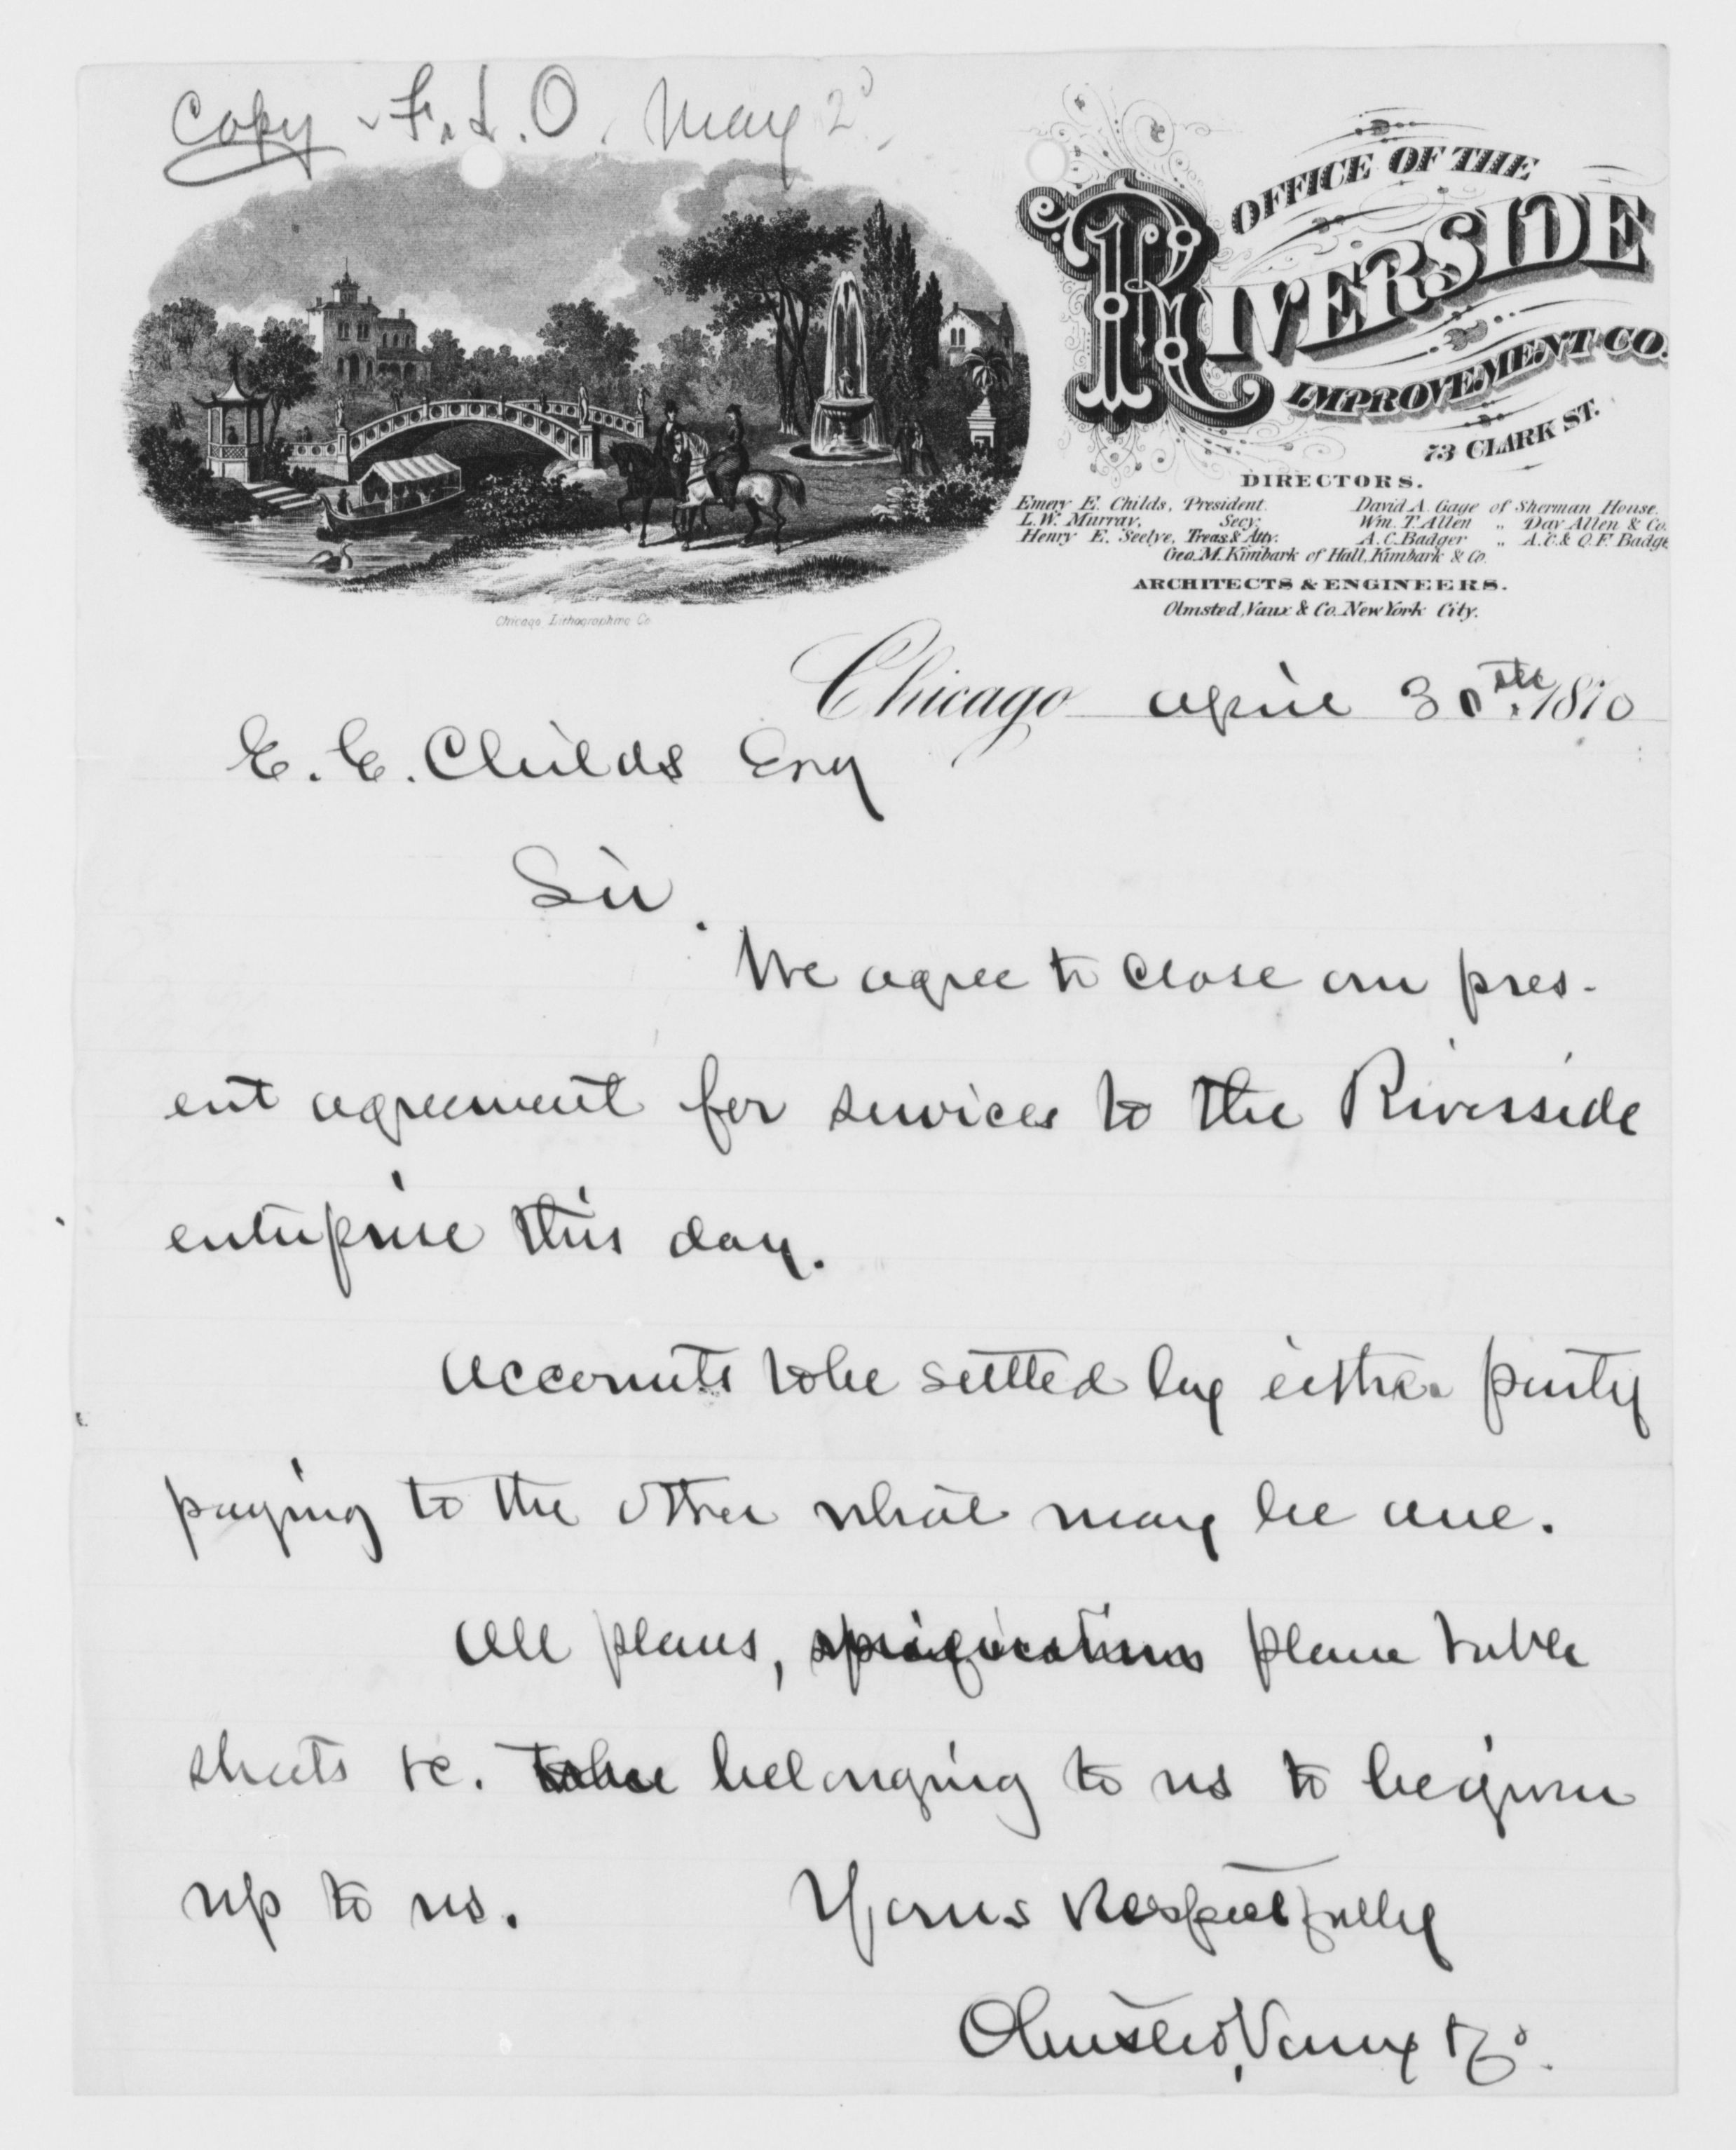 Copy - F. L. O. May 2d.
OFFICE OF THE
RIVERSIDE
IMPROVEMENT CO.
73 CLARK ST.
DIRECTORS.
Emery E. Childs, President. David A. Gage of Sherman House.
L.W. Murray, Secy. Wm. T. Allen " Day Allen & Co.
Henry E. Seelye, Treas. & Atty. A.C. Badger " A.C. & O.F. Badge
Geo. M. Kimbark of Hall, Kimbark & Co.
ARCHITECTS & ENGINEERS.
Olmsted, Vaux & Co. New York City.
Chicago Lithographing Co
Chicago April 30th 1870
E. E. Childs Esq
Sir.
We agree to close our pres-
ent agreement for services to the Riverside
enterprise this day.
Accounts to be settled by either party
paying to the other what may be due.
All plans, specifications plane table
sheets &c. to be belonging to us to be given
up to us. Yours Respectfully
Olmsted, Vaux & Co.